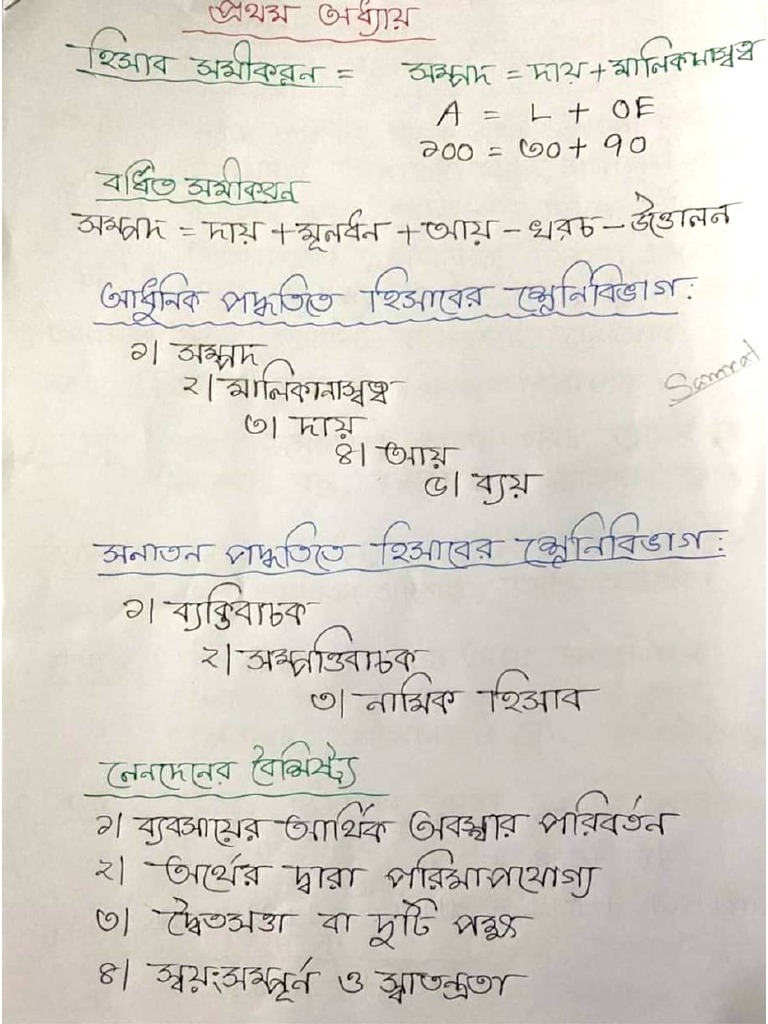 প্রথম অধ্যায়
হিসাব সমীকরন = সম্পদ = দায় + মালিকানাস্বত্ব
A = L + OE
১০০ = ৩০ + ৭০
বর্ধিত সমীকরন
সম্পদ = দায় + মূলধন + আয় - খরচ - উত্তোলন
আধুনিক পদ্ধতিতে হিসাবের শ্রেনিবিভাগ:
১। সম্পদ
২। মালিকানাস্বত্ব
Samrat
৩। দায়
৪। আয়
৫। ব্যয়
সনাতন পদ্ধতিতে হিসাবের শ্রেনিবিভাগ:
১। ব্যক্তিবাচক
২। সম্পত্তিবাচক
৩। নামিক হিসাব
লেনদেনের বৈশিষ্ট্য
১। ব্যবসায়ের আর্থিক অবস্থার পরিবর্তন
২। অর্থের দ্বারা পরিমাপযোগ্য
৩। দ্বৈতসত্তা বা দুটি পক্ষ
৪। স্বয়ংসম্পূর্ন ও স্বাতন্ত্রতা